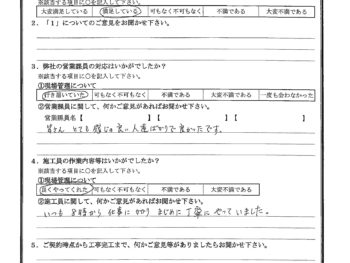 ※該当する項目に○を記入して下さい。
大変満足している 満足している 可もなく不可もなく 不満である 大変不満である
2．「1」についてのご意見をお聞かせ下さい。
3．弊社の営業課員の対応はいかがでしたか？
※該当する項目に○を記入して下さい。
①現場管理について
行き届いていた 可もなく不可もなく 不満である 大変不満である 一度も会わなかった
②営業課員に関して、何かご意見があればお聞かせ下さい。
営業課員名【 】【 】【 】
皆さん とても感じの良い人達ばかりで良かったです。
4．施工員の作業内容等はいかがでしたか？
※該当する項目に○を記入して下さい。
①現場管理について
良くやってくれた 可もなく不可もなく 不満である 大変不満である
②施工員に関して、何かご意見があればお聞かせ下さい。
いつも 8時から 仕事にかかり まじめに 丁寧に やって いました。
5．ご契約時点から工事完工まで、何かご意見等がありましたらお聞かせ下さい。